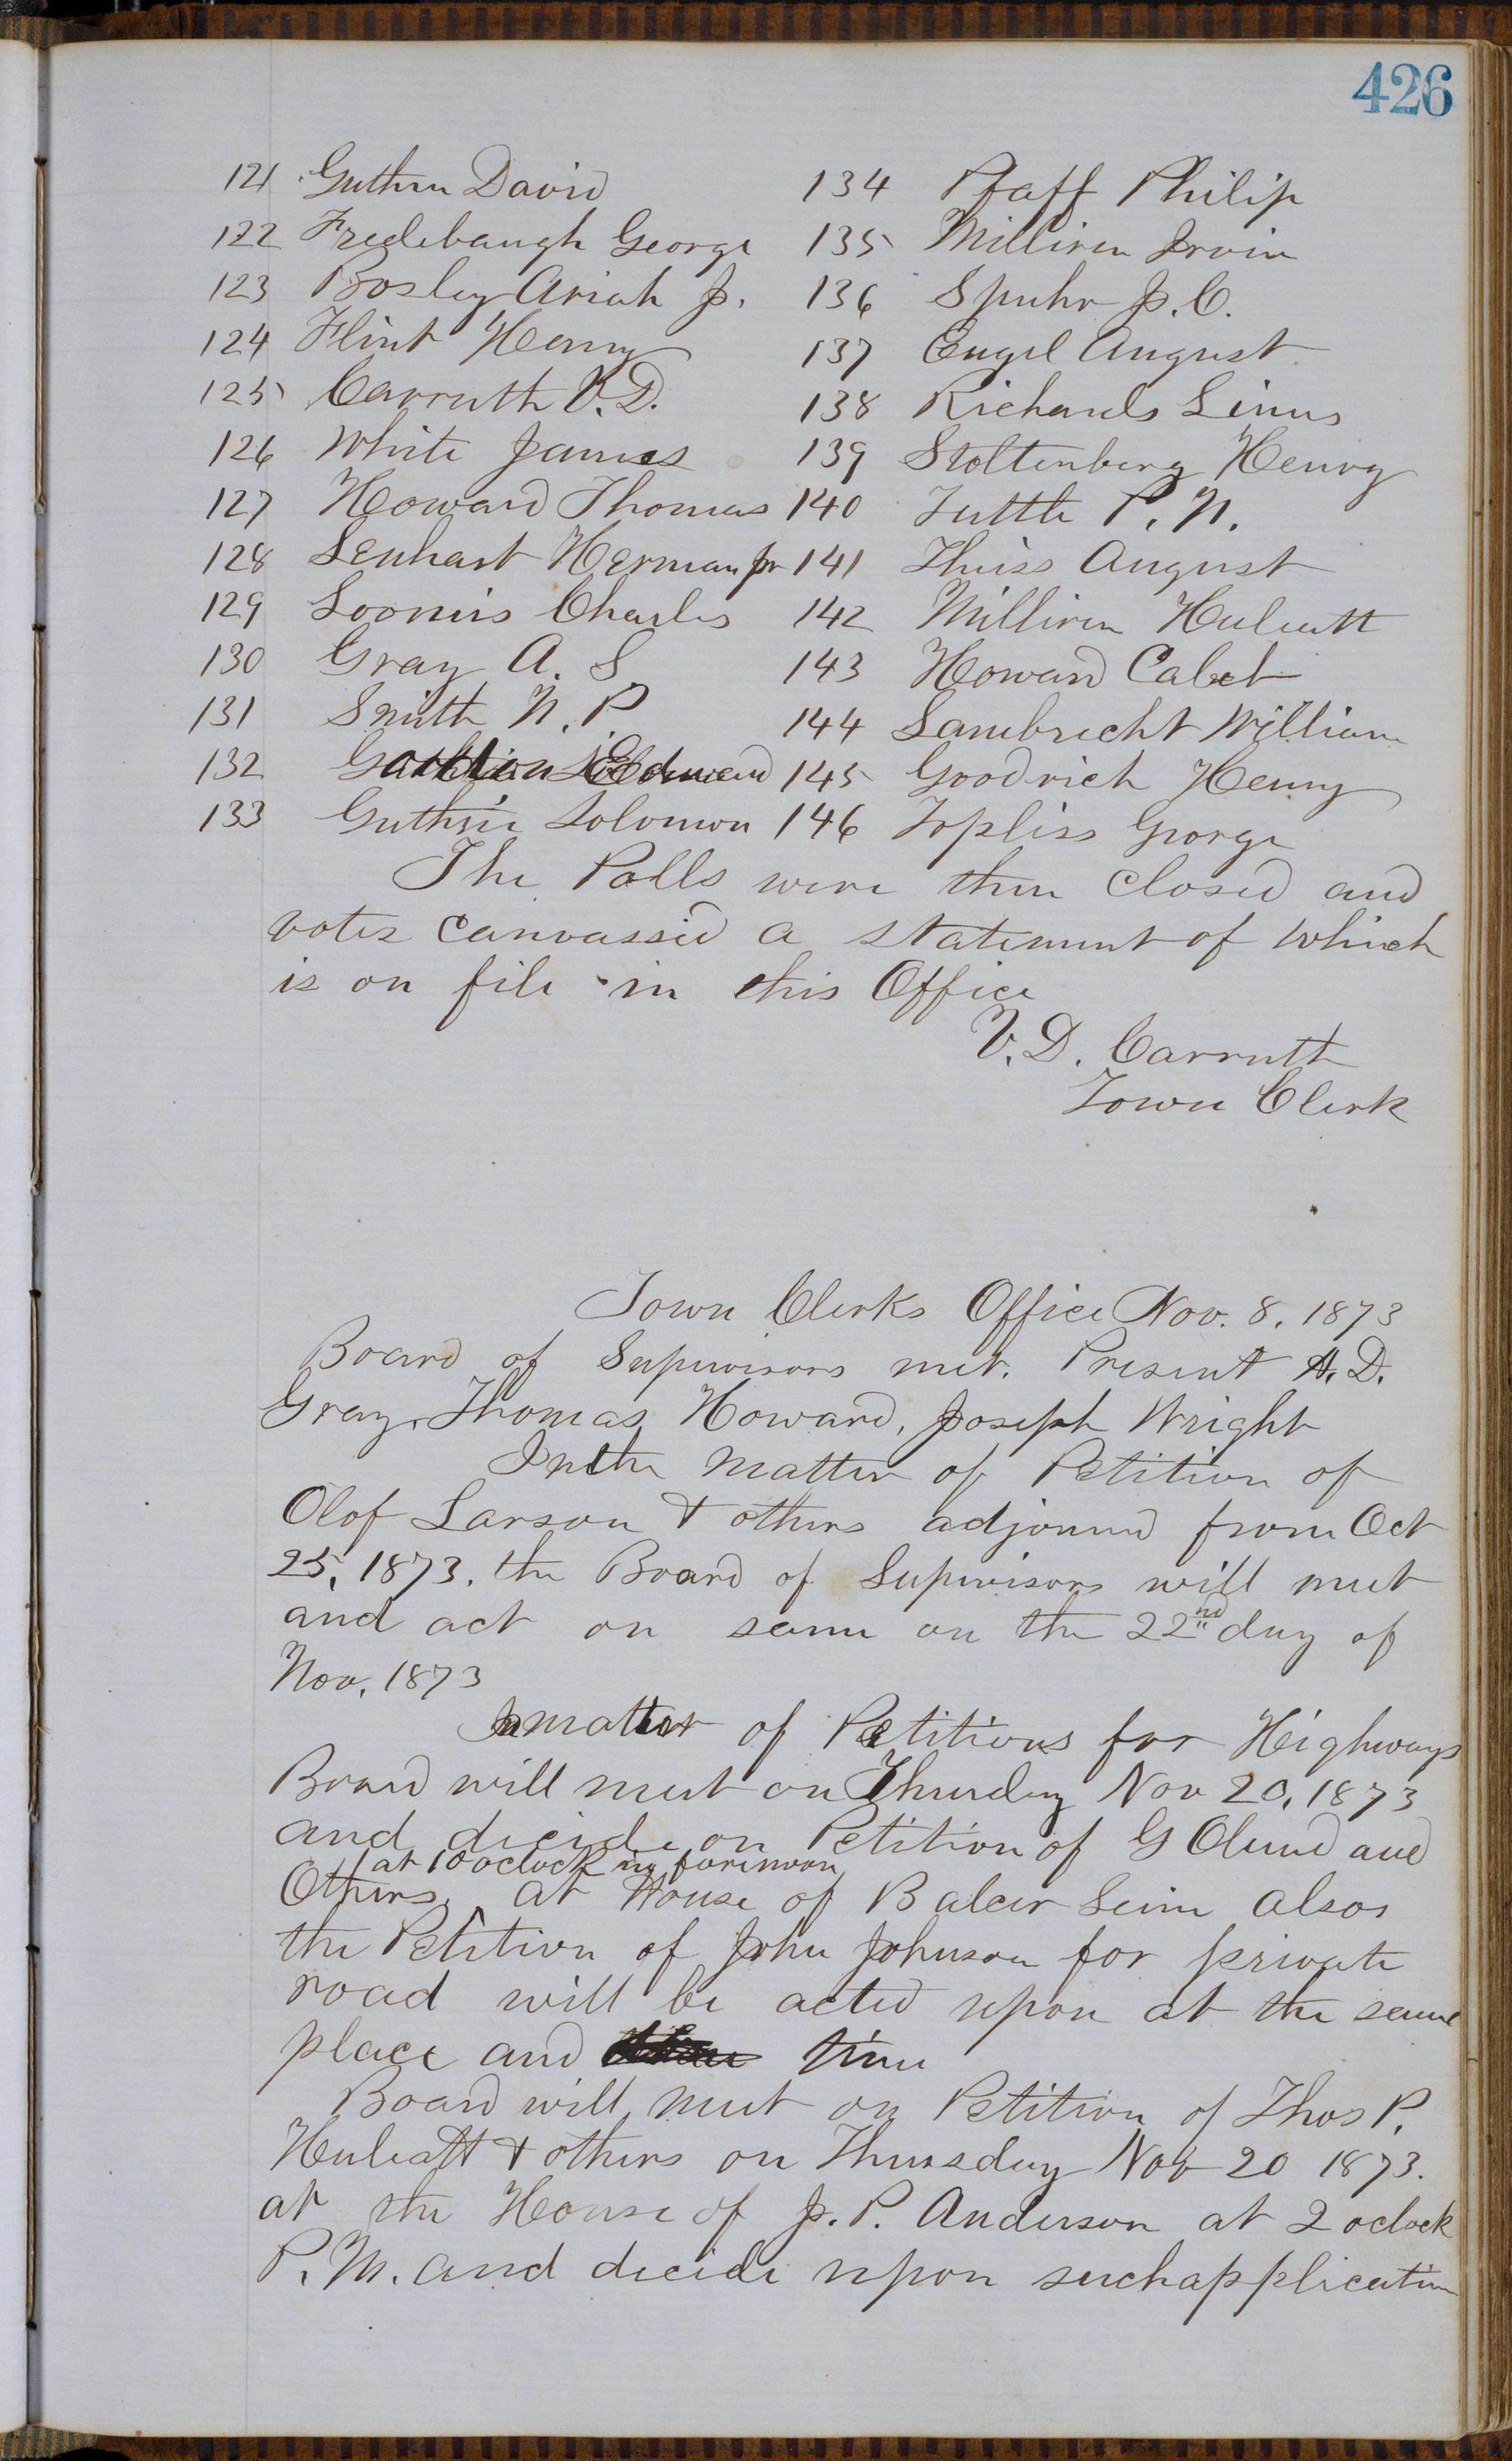 426
121 Guthrie David
122 Fredebaugh George
123 Bosley Ariah J.
124 Flint Henry
125 Carruth V. D.
126 White James
127 Howard Thomas
128 Lenhart Herman Jr
129 Loomis Charles
130 Gray A. S.
131 Smith N. P
132 Edward
133 Guthrie Solomon
134 Pfaff Philip
135 Milliren Irvin
136 Spuhr J. C.
137 Engel August
138 Richards Linus
139 Stoltenberg Henry
140 Tuttle P. N.
141 Thiss August
142 Milliren Hulcatt
143 Howard Cabet
144 Lambrecht William
145 Goodrich Henry
146 Topliss George
The Polls were then Closed and
votes Canvassed a statement of which
is on file in this Office
V. D. Carruth
Town Clerk
Town Clerks Office Nov. 8, 1873
Board of Supervisors met. Present A. D.
Gray, Thomas Howard, Joseph Wright
In the matter of Petition of
Olof Larson & others adjourned from Oct
25, 1873. the Board of Supervisors will meet
and act on same on the 22nd day of
Nov, 1873
In matter of Petitions for Highways
Board will meet on Thursday Nov 20, 1873
and decide on Petition of G Olund and
at 10 oclock in forenoon
Others, at House of Balcer Seim also
the Petition of John Johnson for private
road will be acted upon at the same
place and time
Board will meet on Petition of Thos P.
Hulcatt & others on Thursday Nov 20 1873.
at the House of J. P. Anderson at 2 oclock
P. M. and decide upon such application